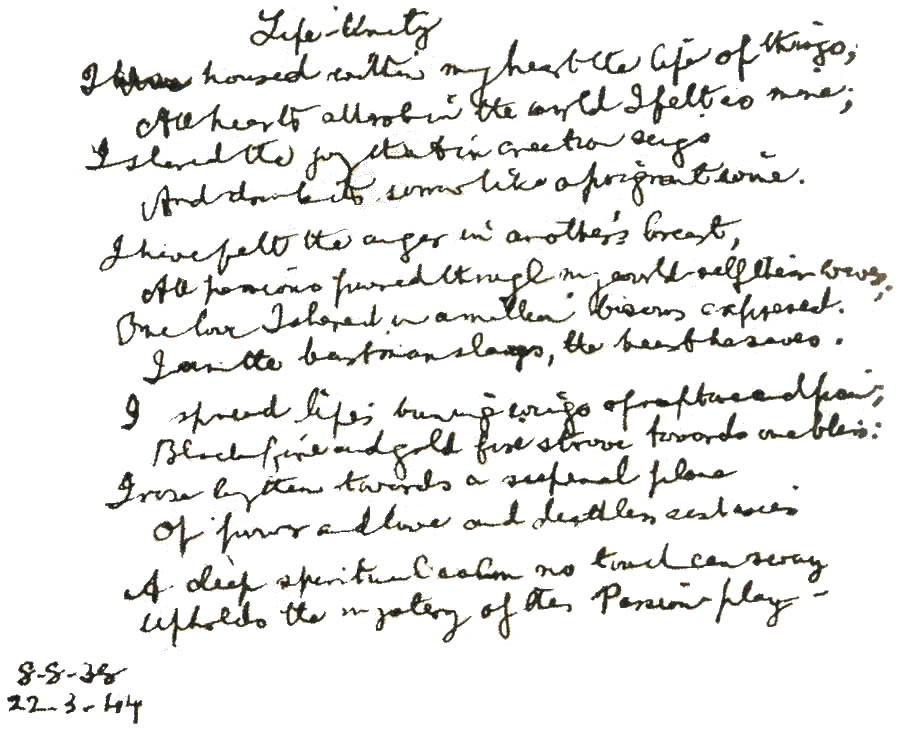 Life-Unity
I housed within my heart the life of things;
All hearts athrob in the world I felt as mine;
I shared the joy that in creation sings
And drank its sorrow like a poignant wine.
I have felt the anger in another's breast,
All passions poured through my world-self their waves;
One love I shared in a million bosoms expressed.
I am the beast man slays, the beast he saves.
I spread life's burning wings of rapture and pain;
Black fire and gold fire strove towards one bliss:
I rose by them towards a supernal plane
Of power and love and deathless ecstasies
A deep spiritual calm no touch can sway
Upholds the mystery of this Passion-play –
8-8-38
22-3-44